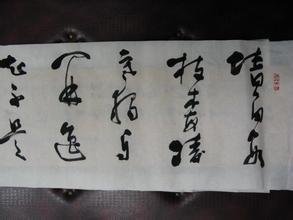 墙角数
枝梅凌
寒独自
开遥
知不是